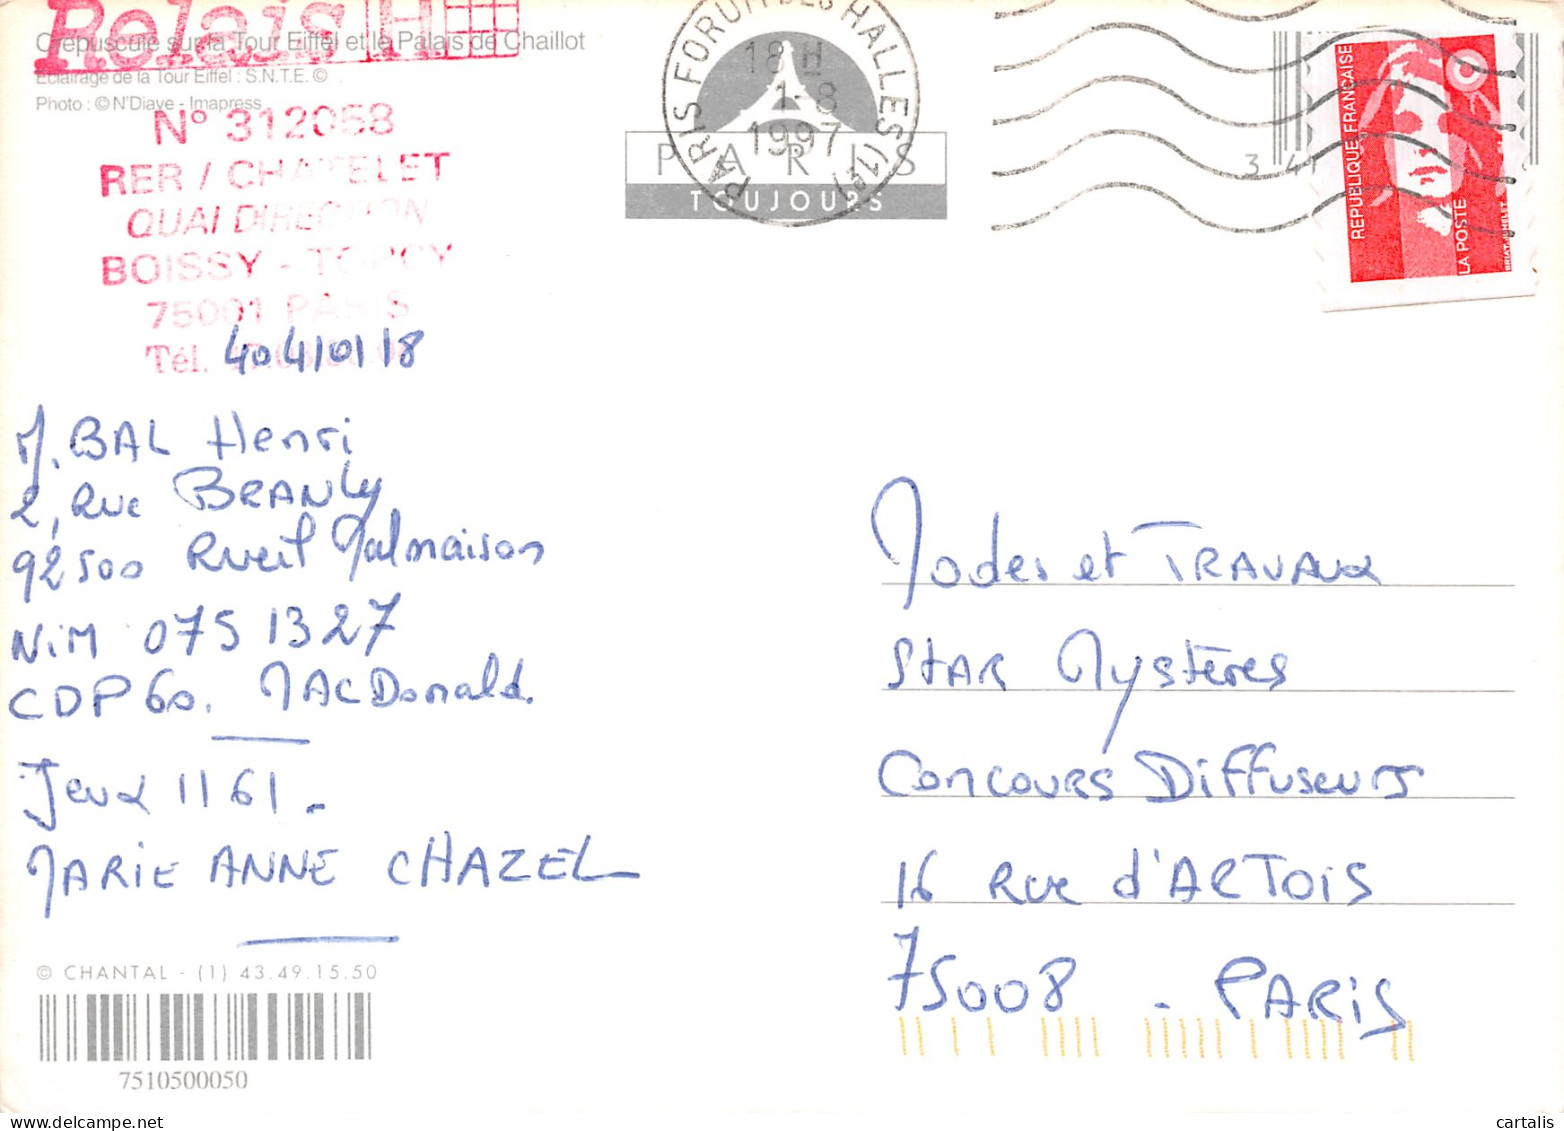 Relais H
Crépuscule sur la Tour Eiffel et le Palais de Chaillot
Eclairage de la Tour Eiffel : S.N.T.E. ©
Photo : © N'Diaye - Imapress
N° 312058
RER / CHATELET
QUAI DIRECTION
BOISSY - TORCY
75001 PARIS
Tél.
404 10118
M. BAL Henri
2, Rue BRANLY
92500 Rueil Malmaison
NiM 0751327
CDP 60. MACDonald.
Jeux 1161.
MARIE ANNE CHAZEL
© CHANTAL - (1) 43.49.15.50
7510500050
PARIS FORUM DES HALLES (1er)
18 H
1-8
1997
PARIS
TOUJOURS
REPUBLIQUE FRANÇAISE
LA POSTE
Modes et TRAVAUX
STAR Mystères
Concours Diffuseurs
16 Rue d'ARTOIS
75008 - PARIS